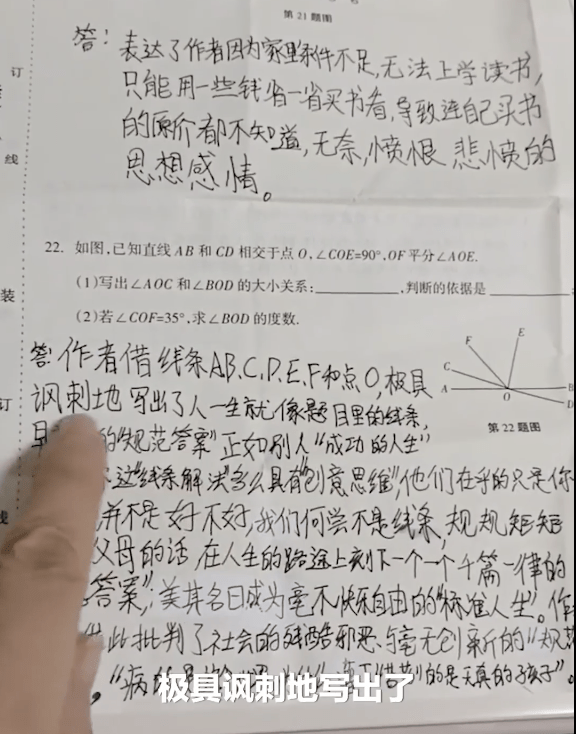 第21题图
答：表达了作者因为家里条件不足,无法上学读书,
只能用一些钱省一省买书看,导致连自己买书
的原价都不知道,无奈,愤恨 悲愤的
思想感情。
22. 如图,已知直线 AB 和 CD 相交于点 O,∠COE=90°,OF 平分∠AOE.
(1)写出∠AOC 和∠BOD 的大小关系:________,判断的依据是________
(2)若∠COF=35°,求∠BOD 的度数.
答:作者借线条AB、C、D、E、F和点O,极具
讽刺地 写出了人一生就像题目里的线条,
的"规范答案"正如别人"成功的人生"
这"线条解法"多么具有"创意思维",他们在乎的只是你
并不是好不好,我们何尝不是线条,规规矩矩
父母的话,在人生的路途上刻下一个一个千篇一律的
答案",美其名曰成为毫不快乐自由的"标准人生"。作
此批判了社会的残酷邪恶与毫无创新的"规范
的是天真的孩子"
E
F
C
A
O
B
D
第22题图
订
线
装
订
线
极具讽刺地写出了